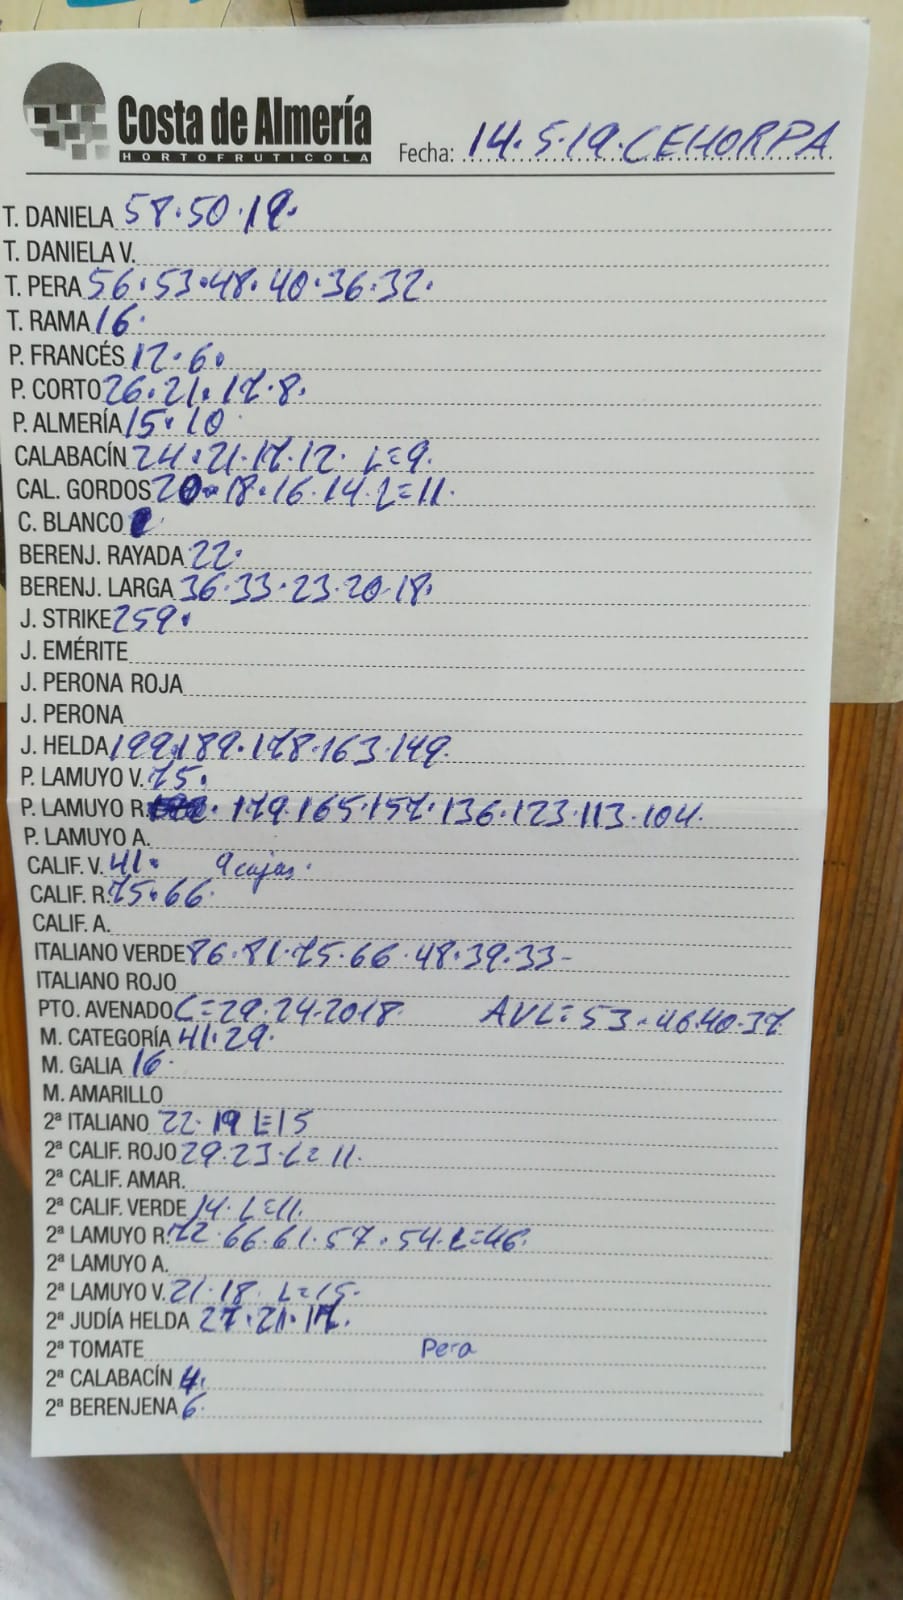 Costa de Almería
HORTOFRUTICOLA
Fecha: 14.5.19. CEHORPA
T. DANIELA 58.50.19.
T. DANIELA V.
T. PERA 56.53.48.40.36.32.
T. RAMA 16.
P. FRANCÉS 12.6.
P. CORTO 26.21.17.8.
P. ALMERÍA 15.10
CALABACÍN 24.21.17.12. L=9.
CAL. GORDOS 20.18.16.14.L=11.
C. BLANCO
BERENJ. RAYADA 22.
BERENJ. LARGA 36.33.23.20.18.
J. STRIKE 259.
J. EMÉRITE
J. PERONA ROJA
J. PERONA
J. HELDA 199.189.178.163.149.
P. LAMUYO V. 75.
P. LAMUYO R. 179.165.157.136.123.113.104.
P. LAMUYO A.
CALIF. V. 41. 9 cajas.
CALIF. R. 75.66.
CALIF. A.
ITALIANO VERDE 86.81.75.66.48.39.33-
ITALIANO ROJO
PTO. AVENADO C=29.24.2018 AVL=53.46.40.37
M. CATEGORÍA 41.29.
M. GALIA 16.
M. AMARILLO
2ª ITALIANO 22.19 L=15
2ª CALIF. ROJO 29.23.L=11.
2ª CALIF. AMAR.
2ª CALIF. VERDE 14. L=11.
2ª LAMUYO R. 72.66.61.57.54.L=46.
2ª LAMUYO A.
2ª LAMUYO V. 21.18. L=15.
2ª JUDÍA HELDA 27.21.17.
2ª TOMATE Pera
2ª CALABACÍN 4.
2ª BERENJENA 6.